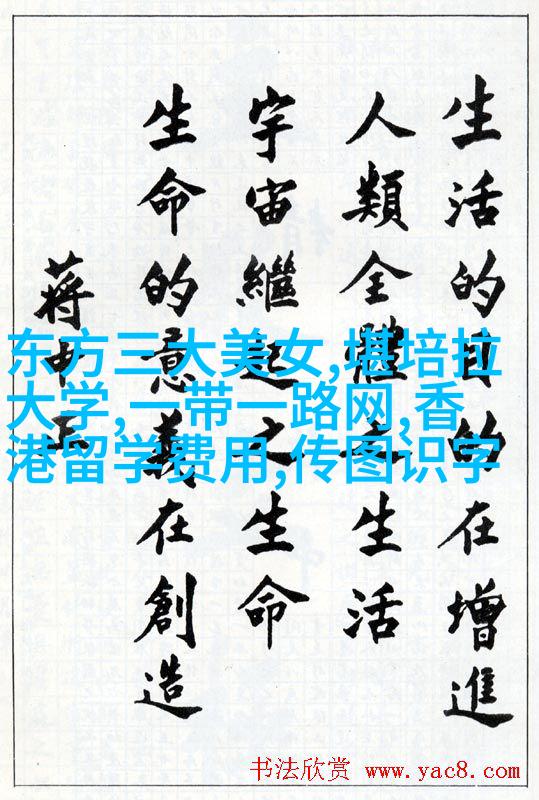 生活的目的在增進
人類全體之生活
宇宙繼起之生命
生命的意義在創造
蔣中正
东方三大美女,堪培拉
大学,一带一路网,香
港留学费用,传图识字
书法欣赏 www.yac8.com